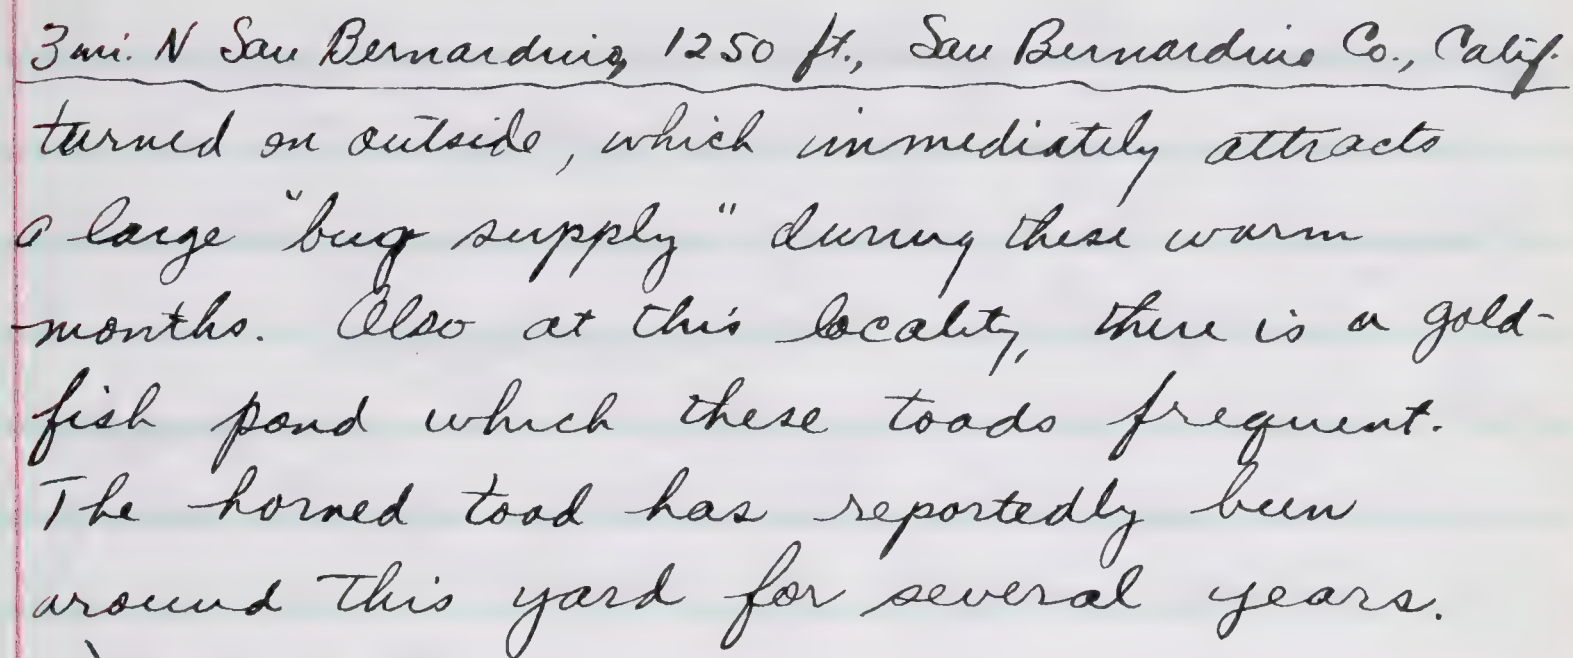 3 mi. N San Bernardino, 1250 ft., San Bernardino Co., Calif.
turned on outside, which immediately attracts
a large "bug supply" during these warm
months. Also at this locality, there is a gold-
fish pond which these toads frequent.
The horned toad has reportedly been
around this yard for several years.